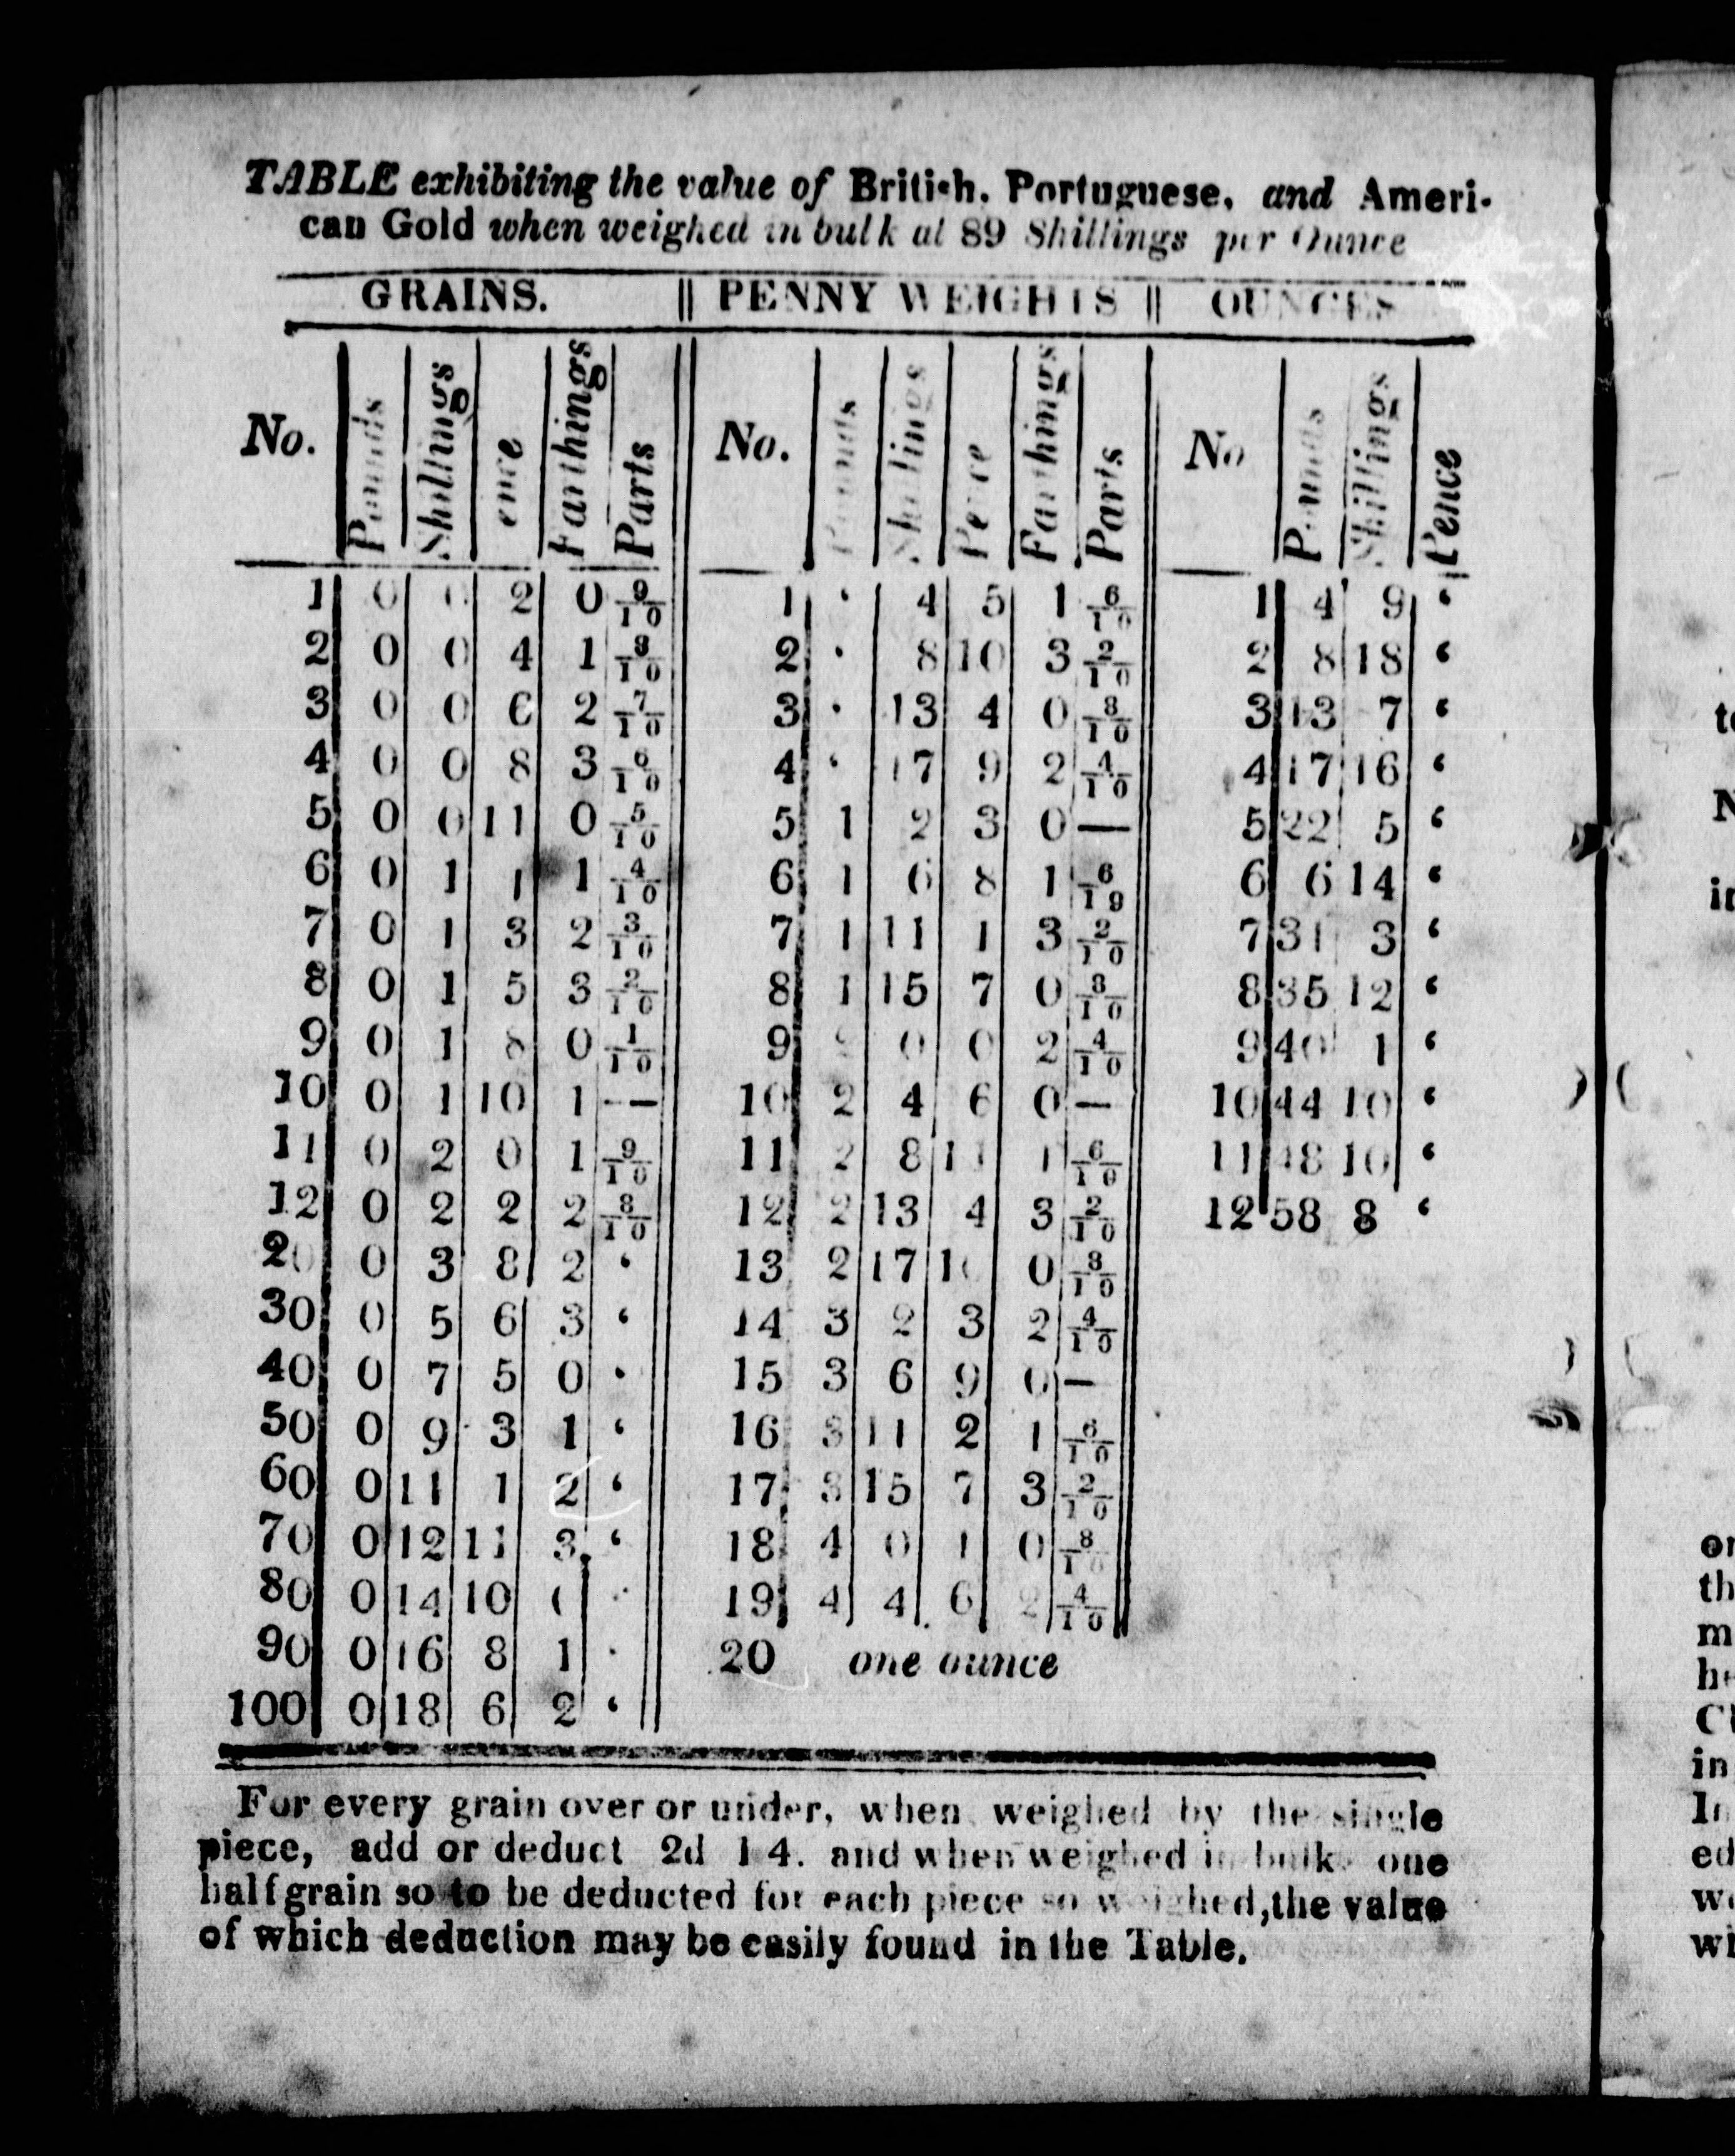 TABLE exhibiting the value of British, Portuguese, and Ameri-
can Gold when weighed in bulk at 89 Shillings per Ounce
GRAINS. || PENNY WEIGHTS || OUNCES
No. Pounds Shillings ence Farthings Parts No. Pounds Shillings Pence Farthings Parts No Pounds Shillings Pence
1 0 0 2 0 9/10 1 ‘ 4 5 1 6/10 1 4 9 ‘
2 0 0 4 1 8/10 2 ‘ 8 10 3 2/10 2 8 18 ‘
3 0 0 6 2 7/10 3 ‘ 13 4 0 8/10 3 13 7 ‘
4 0 0 8 3 6/10 4 ‘ 17 9 2 4/10 4 17 16 ‘
5 0 0 11 0 5/10 5 1 2 3 0 — 5 22 5 ‘
6 0 1 1 1 4/10 6 1 6 8 1 6/19 6 6 14 ‘
7 0 1 3 2 3/10 7 1 11 1 3 2/10 7 31 3 ‘
8 0 1 5 3 2/10 8 1 15 7 0 8/10 8 35 12 ‘
9 0 1 8 0 1/10 9 2 0 0 2 4/10 9 40 1 ‘
10 0 1 10 1 -— 10 2 4 6 0 — 10 44 10 ‘
11 0 2 0 1 9/10 11 2 8 11 1 6/10 11 48 10 ‘
12 0 2 2 2 8/10 12 2 13 4 3 2/10 12 58 8 ‘
20 0 3 8 2 ‘ 13 2 17 10 0 8/10
30 0 5 6 3 ‘ 14 3 2 3 2 4/10
40 0 7 5 0 ‘ 15 3 6 9 0 —
50 0 9 3 1 ‘ 16 3 11 2 1 6/10
60 0 11 1 2 ‘ 17 3 15 7 3 2/10
70 0 12 11 3 ‘ 18 4 0 1 0 8/10
80 0 14 10 0 ‘ 19 4 4 6 2 4/10
90 0 16 8 1 ‘ 20 one ounce
100 0 18 6 2 ‘
For every grain over or under, when weighed by the single
piece, add or deduct 2d 1 4. and when weighed in bulk one
half grain so to be deducted for each piece so weighed, the value
of which deduction may be easily found in the Table.